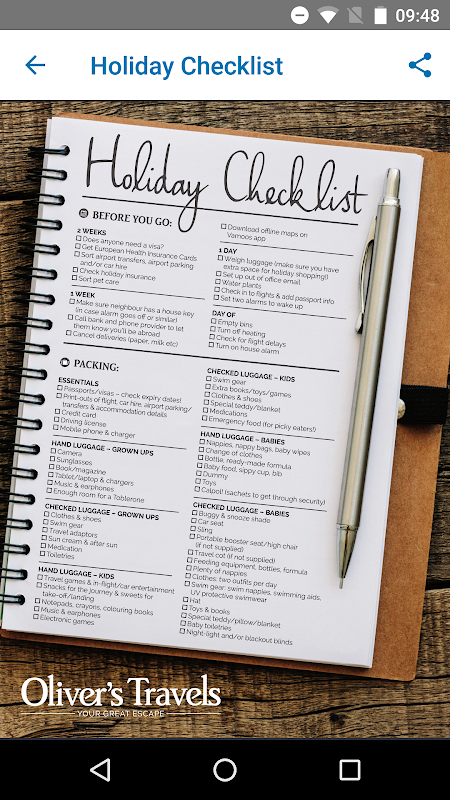 09:48
Holiday Checklist
Holiday Checklist
BEFORE YOU GO:
2 WEEKS
Does anyone need a visa?
Get European Health Insurance Cards
Sort airport transfers, airport parking
and/or car hire
Check holiday insurance
Sort pet care
1 WEEK
Make sure neighbour has a house key
(in case alarm goes off or similar)
Call bank and phone provider to let
them know you'll be abroad
Cancel deliveries (paper, milk etc)
Download offline maps on
Vamoos app
1 DAY
Weigh luggage (make sure you have
extra space for holiday shopping!)
Set up out of office email
Water plants
Check in to flights & add passport info
Set two alarms to wake up
DAY OF
Empty bins
Turn off heating
Check for flight delays
Turn on house alarm
PACKING:
ESSENTIALS
Passports/visas – check expiry dates!
Print-outs of flight, car hire, airport parking/
transfers & accommodation details
Credit card
Driving license
Mobile phone & charger
HAND LUGGAGE – GROWN UPS
Camera
Sunglasses
Book/magazine
Tablet/laptop & chargers
Music & earphones
Enough room for a Toblerone
CHECKED LUGGAGE – GROWN UPS
Clothes & shoes
Swim gear
Travel adaptors
Sun cream & after sun
Medication
Toiletries
HAND LUGGAGE – KIDS
Travel games & in-flight/car entertainment
Snacks for the journey & sweets for
take-off/landing
Notepads, crayons, colouring books
Music & earphones
Electronic games
CHECKED LUGGAGE – KIDS
Swim gear
Extra books/toys/games
Clothes & shoes
Special teddy/blanket
Medications
Emergency food (for picky eaters!)
HAND LUGGAGE – BABIES
Nappies, nappy bags, baby wipes
Change of clothes
Bottle, ready-made formula
Baby food, sippy cup, bib
Dummy
Toys
Calpol! (sachets to get through security)
CHECKED LUGGAGE – BABIES
Buggy & snooze shade
Car seat
Sling
Portable booster seat/high chair
(if not supplied)
Travel cot (if not supplied)
Feeding equipment, bottles, formula
Plenty of nappies
Clothes: two outfits per day
Swim gear: swim nappies, swimming aids,
UV protective swimwear
Hat
Toys & books
Special teddy/pillow/blanket
Baby toiletries
Night-light and/or blackout blinds
Oliver's Travels
YOUR GREAT ESCAPE